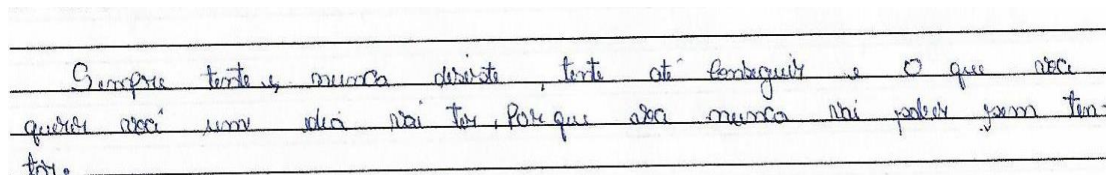 Sempre tente, nunca desiste, tente até conseguir e o que voce
querer você um dia vai ter. Por que voce nunca vai poder sem ten-
tar.